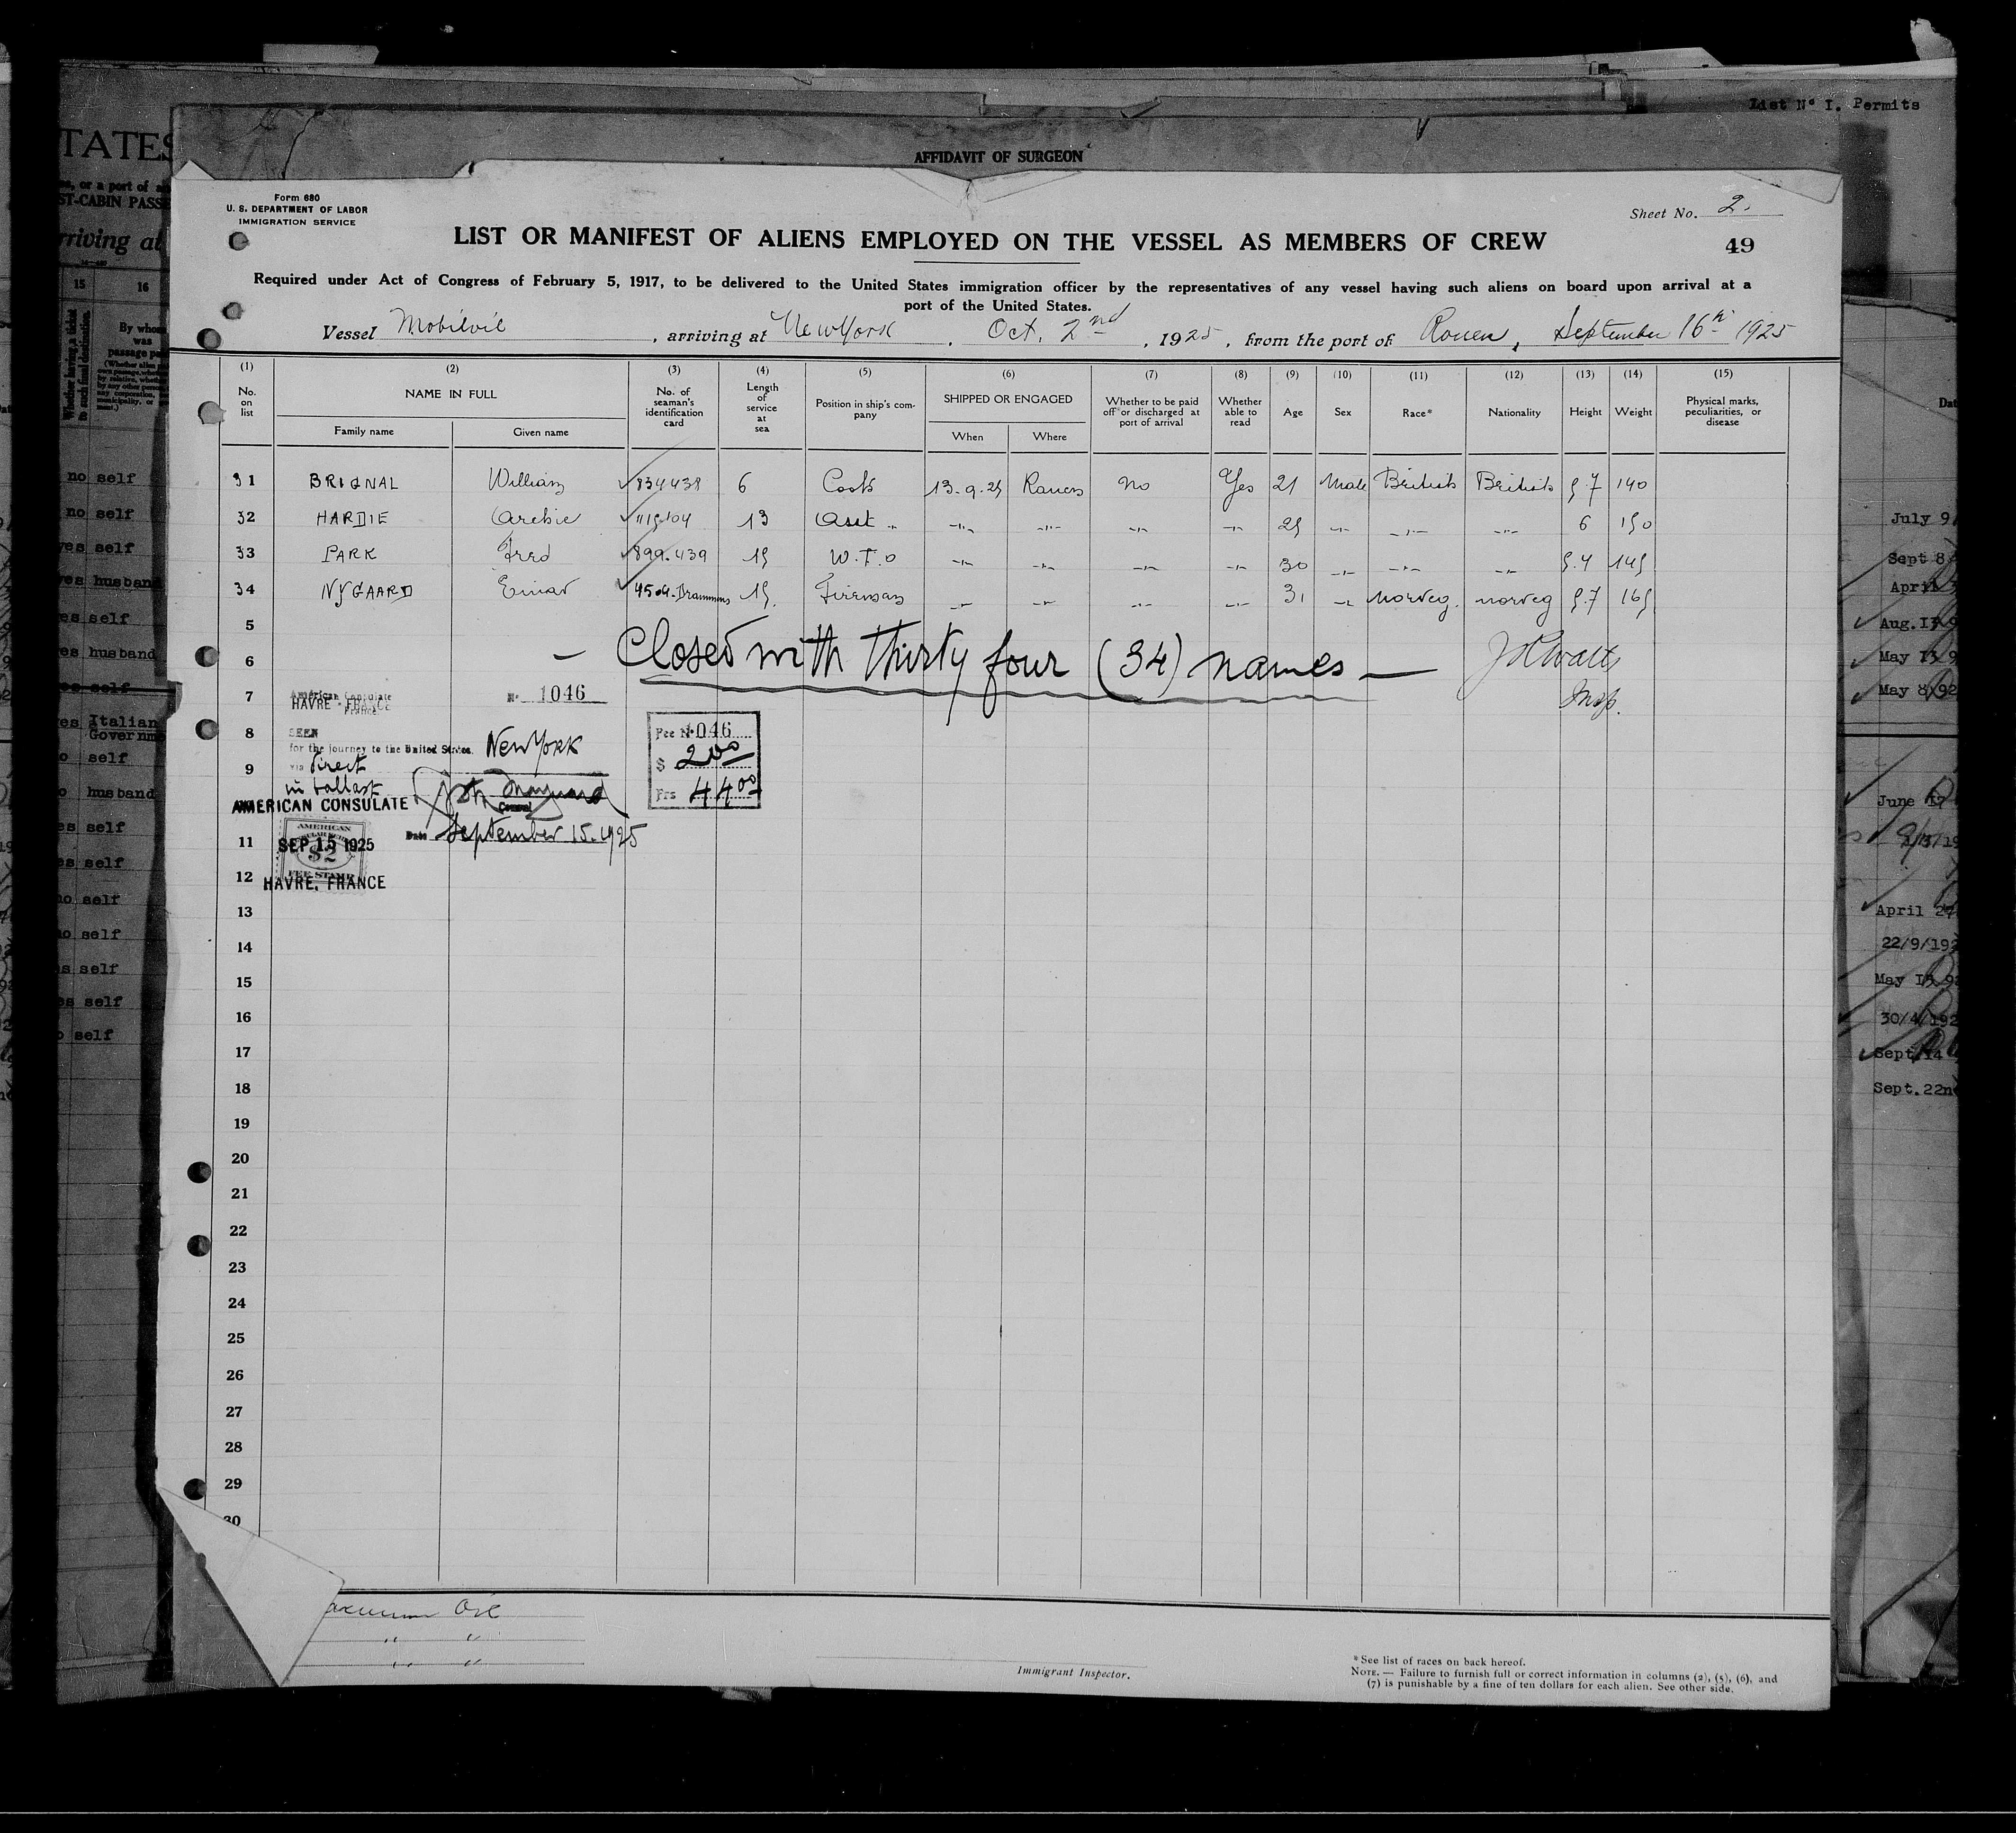 List No I. Permits
AFFIDAVIT OF SURGEON
Form 680
U. S. DEPARTMENT OF LABOR
IMMIGRATION SERVICE
Sheet No. 2.
LIST OR MANIFEST OF ALIENS EMPLOYED ON THE VESSEL AS MEMBERS OF CREW
49
Required under Act of Congress of February 5, 1917, to be delivered to the United States immigration officer by the representatives of any vessel having such aliens on board upon arrival at a
port of the United States.
Vessel Mobiloil, arriving at New York, Oct. 2nd, 1925, from the port of Rouen, September 16th 1925
(1) (2) (3) (4) (5) (6) (7) (8) (9) (10) (11) (12) (13) (14) (15)
No. on list NAME IN FULL No. of seaman's identification card Length of service at sea Position in ship's company SHIPPED OR ENGAGED Whether to be paid off or discharged at port of arrival Whether able to read Age Sex Race* Nationality Height Weight Physical marks, peculiarities, or disease
Family name Given name When Where
31 BRIGNAL William 834438 6 Cook 13.9.25 Rouen No Yes 21 Male British British 5.7 140
32 HARDIE Archie 1115104 13 Asst " -"- -"- -"- -"- 25 -"- -"- -"- 6 150
33 PARK Fred 899.439 15 W.T.O -"- -"- -"- -"- 30 -"- -"- -"- 5.4 145
34 NYGAARD Einar 4504.Drammens 15. Fireman -"- -"- -"- -"- 31 -"- Norveg. Norveg 5.7 165
5
6 - Closed with thirty four (34) names -
Insp.
7 American Consulate
HAVRE - FRANCE No. 1046
8 SEEN
for the journey to the United States. New York
9 via direct
in ballast
Fee No 1046
$ 2.00
Frs 44.00
Maynard
Consul
AMERICAN CONSULATE
Date September 15. 1925
11 SEP 15 1925
AMERICAN
$2
FEE STAMP
12 HAVRE, FRANCE
13
14
15
16
17
18
19
20
21
22
23
24
25
26
27
28
29
30
Oil
" "
" "
Immigrant Inspector.
*See list of races on back hereof.
NOTE. — Failure to furnish full or correct information in columns (2), (5), (6), and
(7) is punishable by a fine of ten dollars for each alien. See other side.
TATES
ST-CABIN PASSE
rriving at
15 16
By whom
was
passage pa
no self
no self
yes self
yes husband
es self
es husband
es self
es Italian
Governm
o self
o husband
es self
es self
no self
no self
s self
es self
o self
July 9
Sept 8
April 3
Aug. 13
May 13
May 8/92
June 17
April 27
22/9/192
May 15
30/4/192
Sept. 14
Sept. 22n